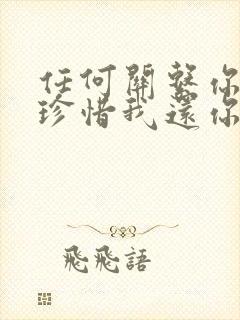 任何關繫你
珍惜我還你
飛飛語